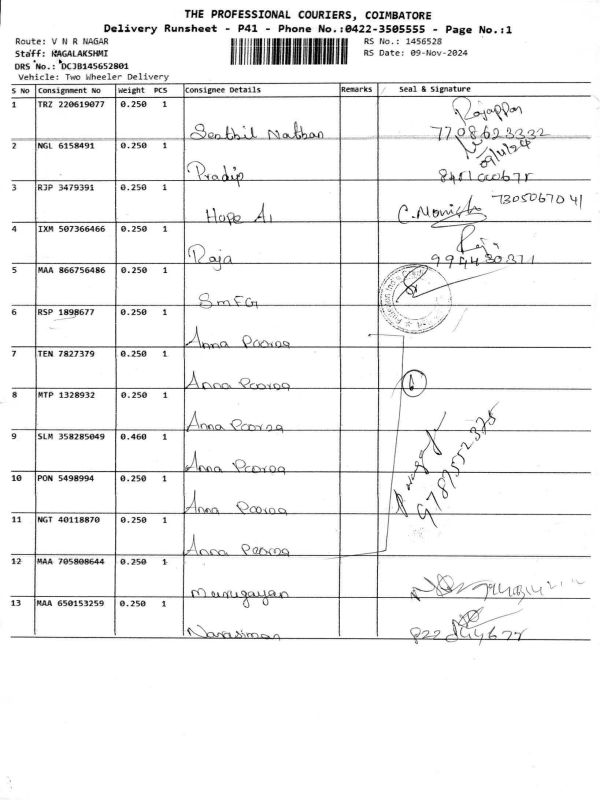 THE PROFESSIONAL COURIERS, COIMBATORE
Delivery Runsheet - P41 - Phone No.:0422-3505555 - Page No.:1
Route: V N R NAGAR RS No.: 1456528
Staff: NAGALAKSHMI RS Date: 09-Nov-2024
DRS No.: DCJB145652801
Vehicle: Two Wheeler Delivery
S No Consignment No Weight PCS Consignee Details Remarks Seal & Signature
1 TRZ 220619077 0.250 1 Rajappan
Senthil Nathan 7708623332
2 NGL 6158491 0.250 1 09/11/24
Pradip
3 RJP 3479391 0.250 1 7305067041
Hope AI C.Monish
4 IXM 507366466 0.250 1 Raji
Raja
5 MAA 866756486 0.250 1
SMFG
6 RSP 1898677 0.250 1
Anna Pooraa
7 TEN 7827379 0.250 1
Anna Pooraa 6
8 MTP 1328932 0.250 1
Anna Pooraa
9 SLM 358285049 0.460 1
Anna Pooraa 9787552375
10 PON 5498994 0.250 1
Anna Pooraa
11 NGT 40118870 0.250 1
Anna Pooraa
12 MAA 705808644 0.250 1
Murugayan
13 MAA 650153259 0.250 1
Narasiman